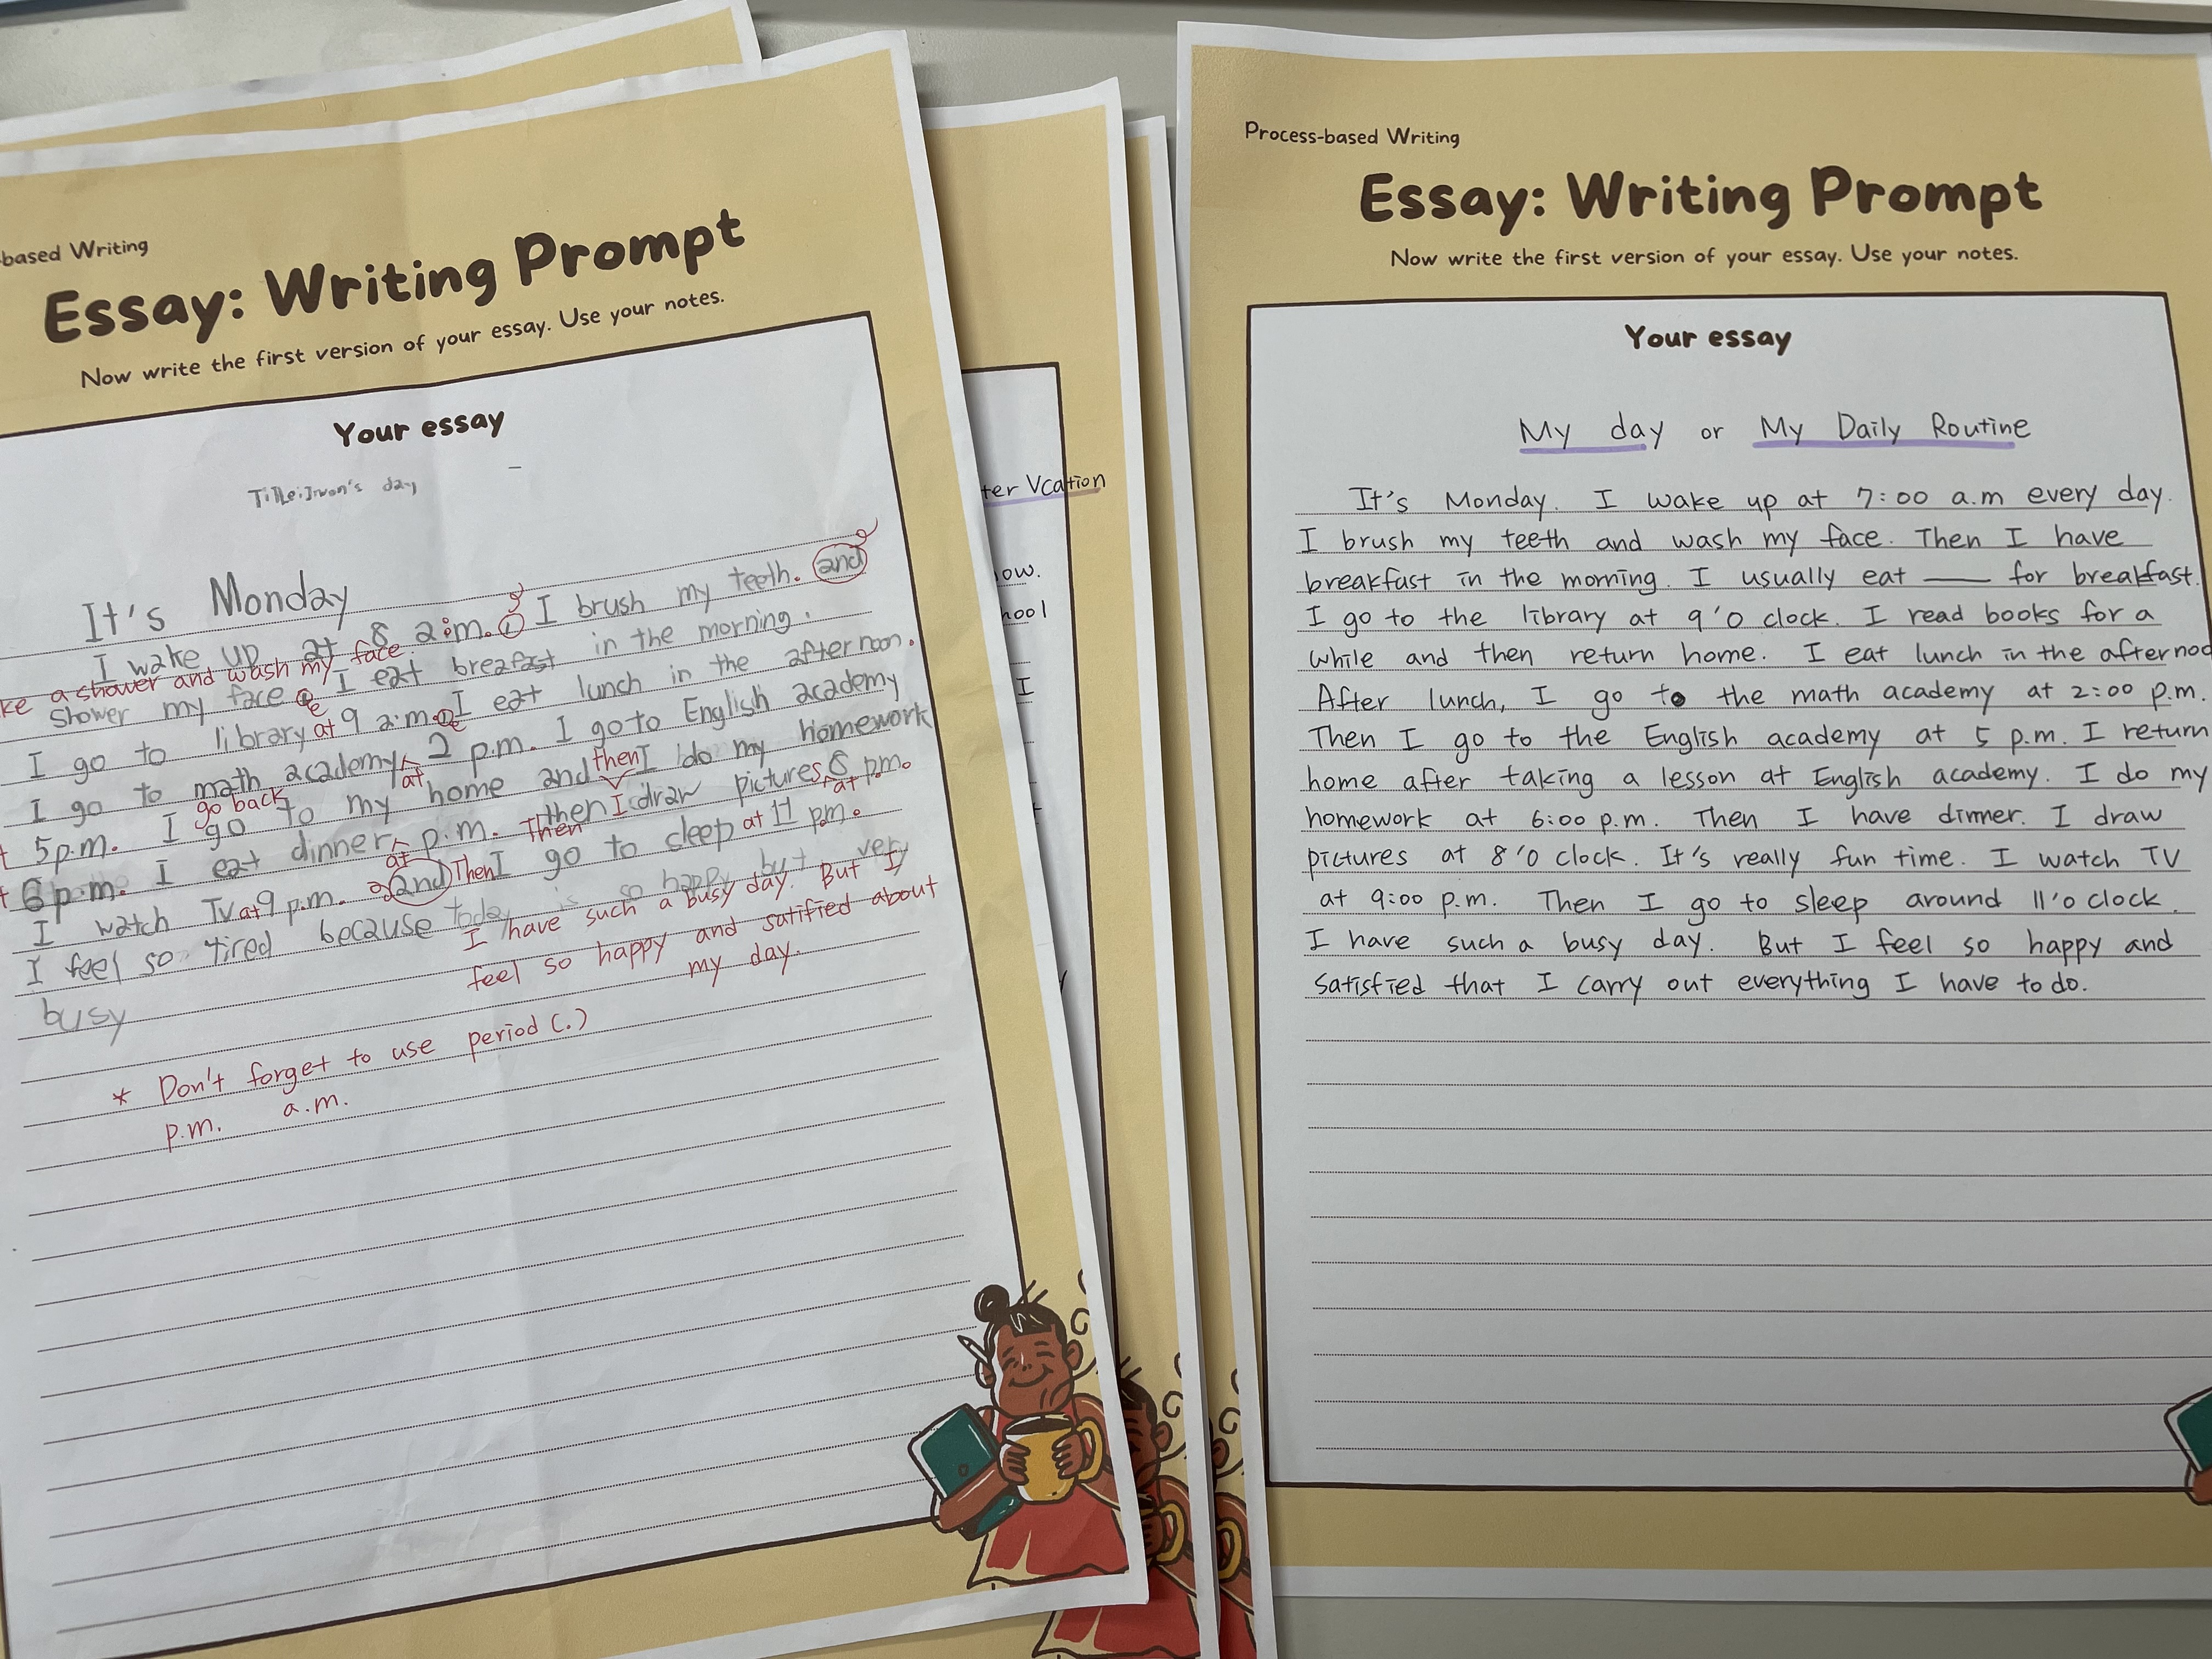 -based Writing
Essay: Writing Prompt
Now write the first version of your essay. Use your notes.
Your essay
Title:Jiwon's day
It's Monday
I wake up at 8 a.m. I brush my teeth. and
ke a shower and wash my face.
shower my face I eat breafast in the morning.
I go to library at 9 a.m. I eat lunch in the afternoon.
I go to math academy at 2 p.m. I go to English academy
t 5p.m. I go back to my home and then I do my homework
t 6p.m. I eat dinner at p.m. Then then I draw pictures at 8 p.m.
I watch TV at 9 p.m. and Then I go to sleep at 11 p.m.
I feel so tired because today is so happy but very
busy
I have such a busy day. But I
feel so happy and satified about
my day.
* Don't forget to use period (.)
p.m. a.m.
ter Vcation
ow.
hool
I
Process-based Writing
Essay: Writing Prompt
Now write the first version of your essay. Use your notes.
Your essay
My day or My Daily Routine
It's Monday. I wake up at 7:00 a.m every day.
I brush my teeth and wash my face. Then I have
breakfast in the morning. I usually eat ___ for breakfast.
I go to the library at 9'o clock. I read books for a
while and then return home. I eat lunch in the afternoo
After lunch, I go to the math academy at 2:00 p.m.
Then I go to the English academy at 5 p.m. I return
home after taking a lesson at English academy. I do my
homework at 6:00 p.m. Then I have dinner. I draw
pictures at 8'o clock. It's really fun time. I watch TV
at 9:00 p.m. Then I go to sleep around 11'o clock.
I have such a busy day. But I feel so happy and
satisfied that I carry out everything I have to do.